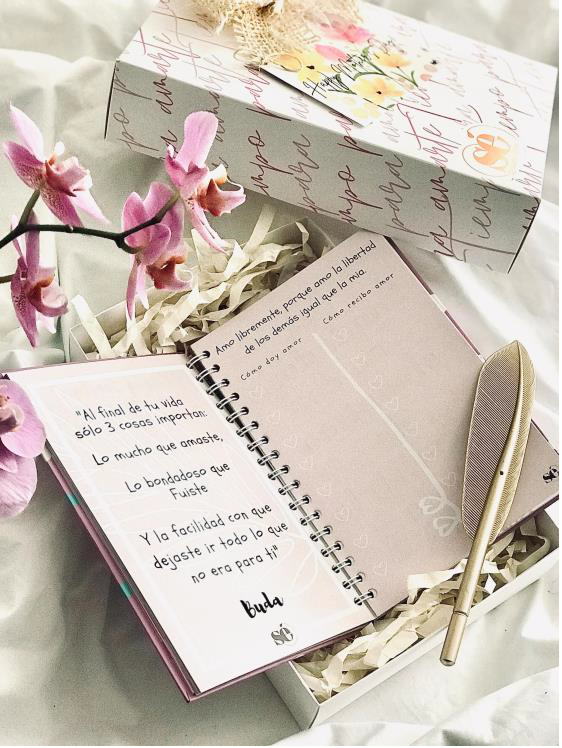 Happy
sé
tiempo para amarte
Amo libremente, porque amo la libertad
de los demás igual que la mía.
Cómo doy amor
Cómo recibo amor
"Al final de tu vida
sólo 3 cosas importan:
Lo mucho que amaste,
Lo bondadoso que
Fuiste
Y la facilidad con que
dejaste ir todo lo que
no era para ti"
Buda
sé
sé